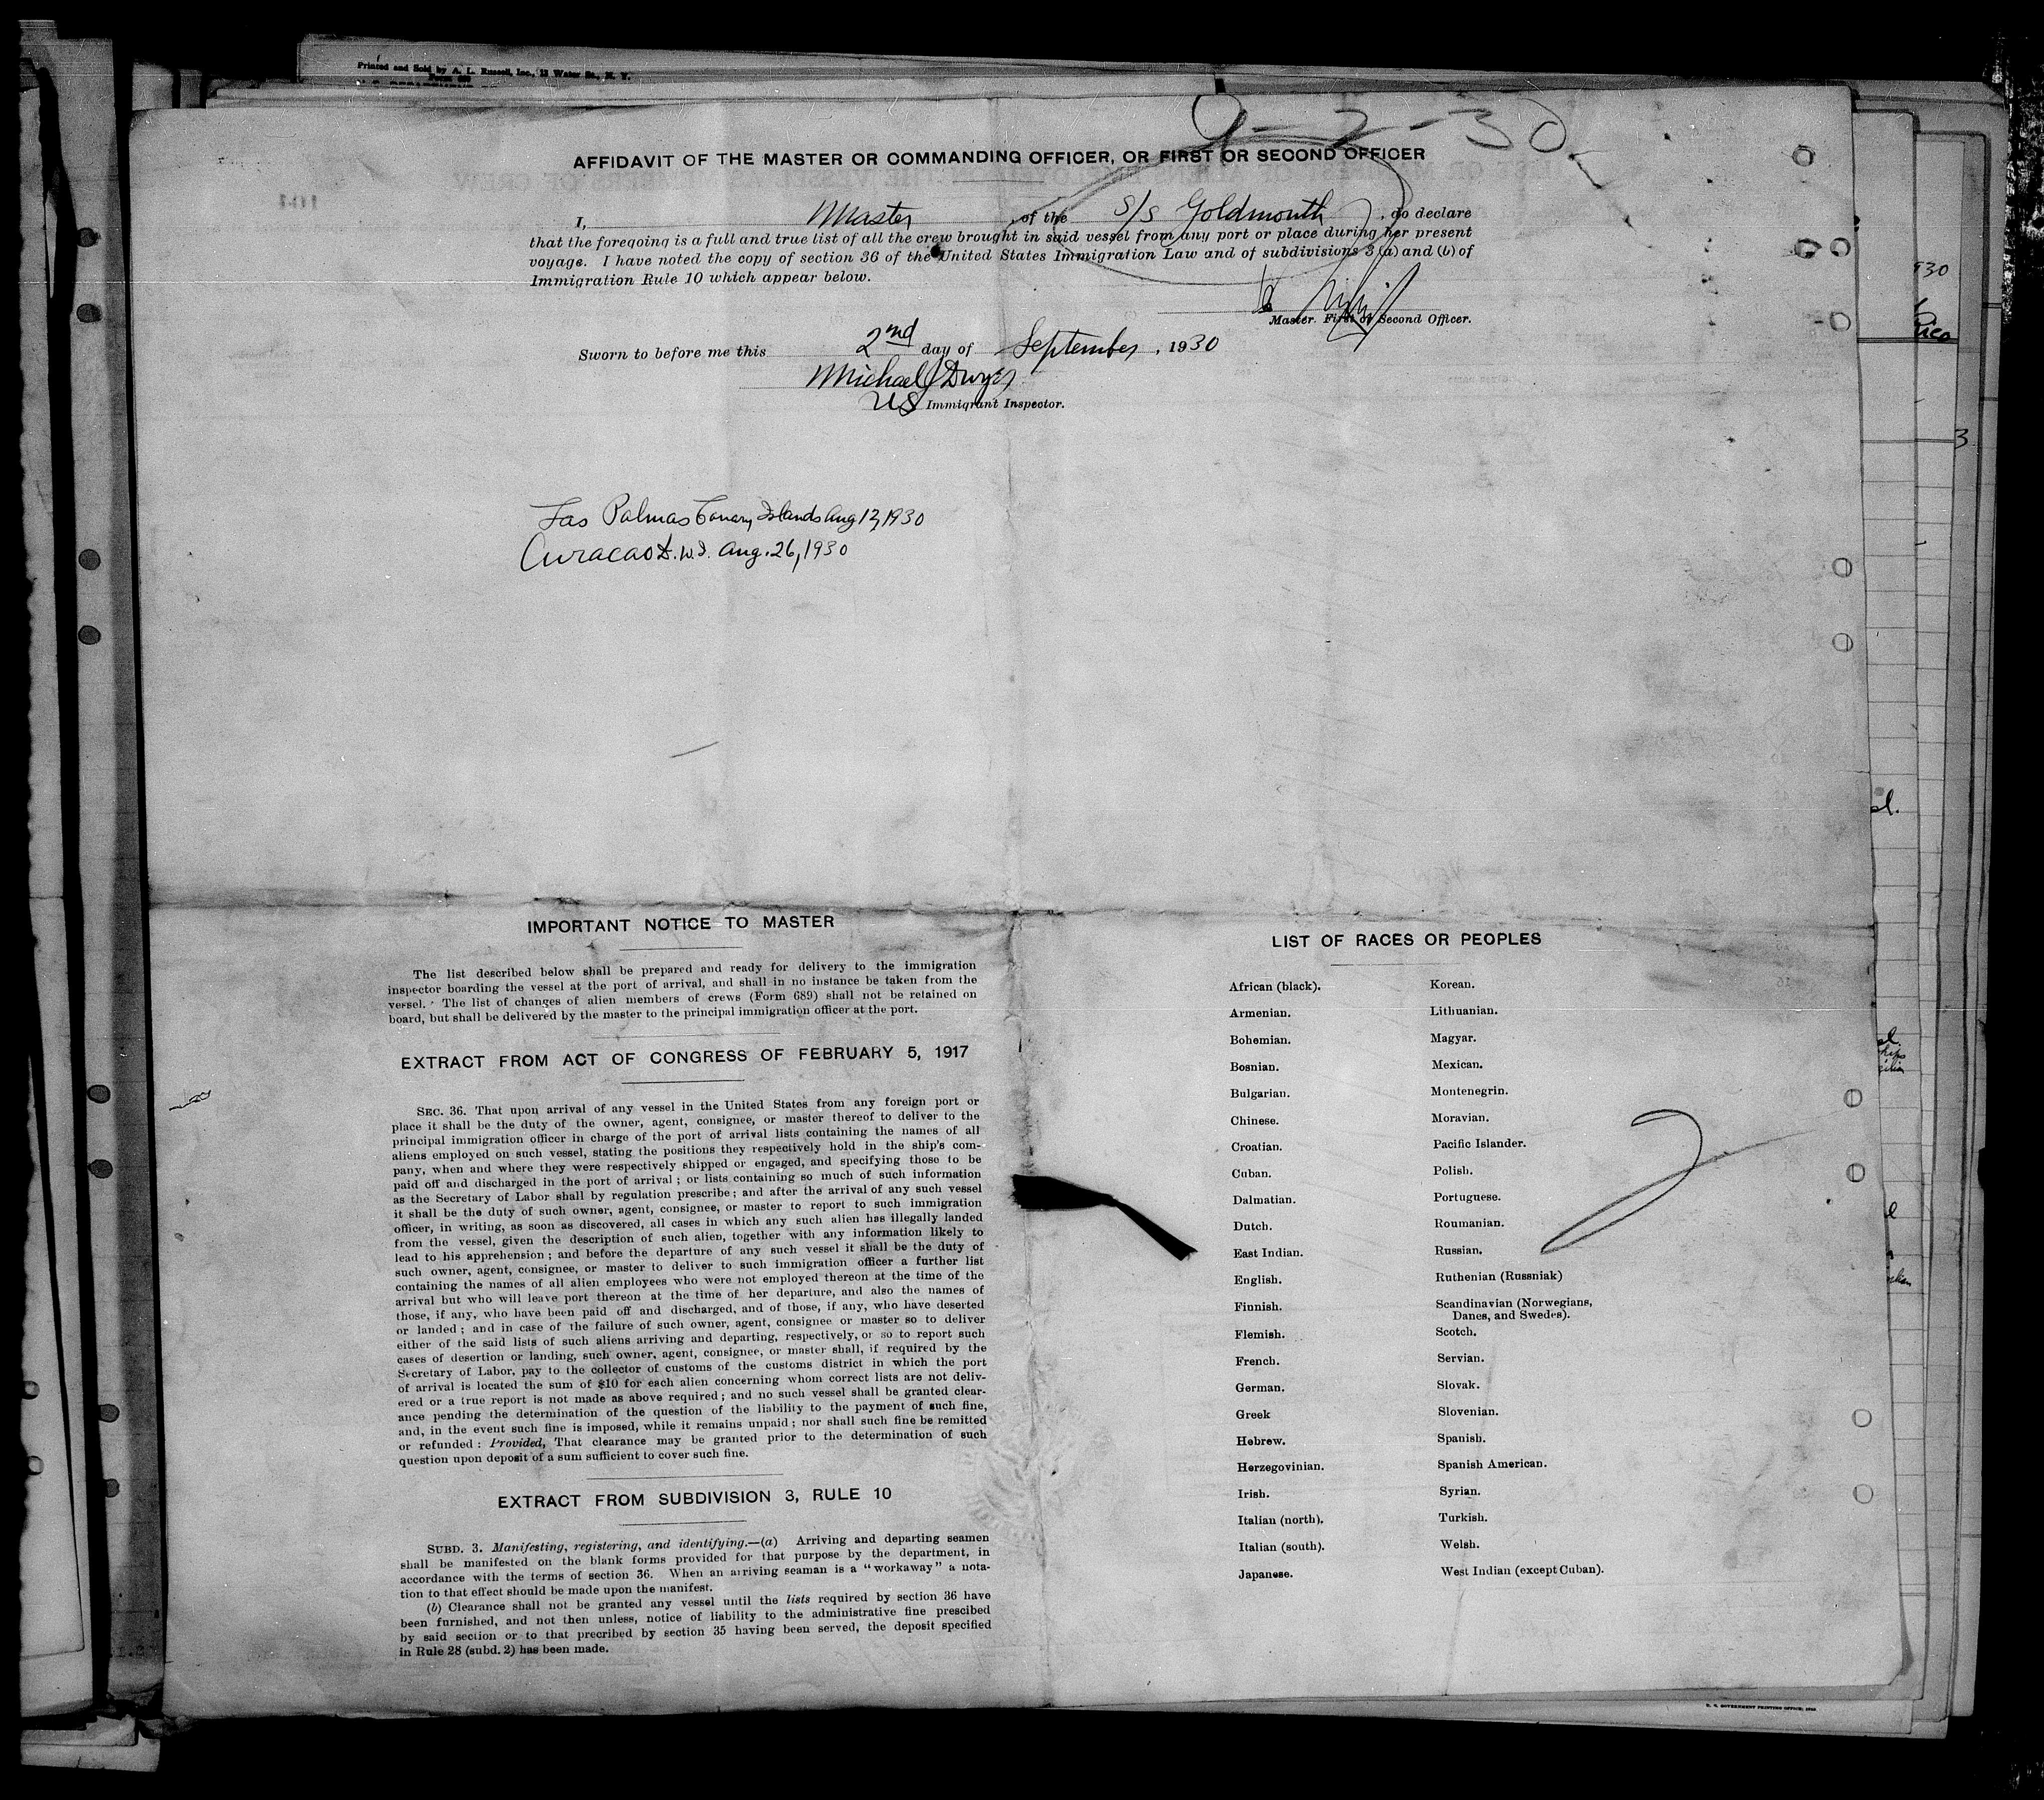 Printed and Sold by A. L. Russell, Inc., 12 Water St., N. Y.
9-2-30
AFFIDAVIT OF THE MASTER OR COMMANDING OFFICER, OR FIRST OR SECOND OFFICER
I, Master, of the S/S Goldmouth, do declare
that the foregoing is a full and true list of all the crew brought in said vessel from any port or place during her present
voyage. I have noted the copy of section 36 of the United States Immigration Law and of subdivisions 3 (a) and (b) of
Immigration Rule 10 which appear below.
Master First or Second Officer.
Sworn to before me this 2nd day of September, 1930
Michael J Dwyer
US Immigrant Inspector.
Las Palmas Canary Islands Aug 12, 1930
Curacao D.W.I. Aug. 26, 1930
IMPORTANT NOTICE TO MASTER
The list described below shall be prepared and ready for delivery to the immigration
inspector boarding the vessel at the port of arrival, and shall in no instance be taken from the
vessel. The list of changes of alien members of crews (Form 689) shall not be retained on
board, but shall be delivered by the master to the principal immigration officer at the port.
EXTRACT FROM ACT OF CONGRESS OF FEBRUARY 5, 1917
SEC. 36. That upon arrival of any vessel in the United States from any foreign port or
place it shall be the duty of the owner, agent, consignee, or master thereof to deliver to the
principal immigration officer in charge of the port of arrival lists containing the names of all
aliens employed on such vessel, stating the positions they respectively hold in the ship's com-
pany, when and where they were respectively shipped or engaged, and specifying those to be
paid off and discharged in the port of arrival; or lists containing so much of such information
as the Secretary of Labor shall by regulation prescribe; and after the arrival of any such vessel
it shall be the duty of such owner, agent, consignee, or master to report to such immigration
officer, in writing, as soon as discovered, all cases in which any such alien has illegally landed
from the vessel, given the description of such alien, together with any information likely to
lead to his apprehension; and before the departure of any such vessel it shall be the duty of
such owner, agent, consignee, or master to deliver to such immigration officer a further list
containing the names of all alien employees who were not employed thereon at the time of the
arrival but who will leave port thereon at the time of her departure, and also the names of
those, if any, who have been paid off and discharged, and of those, if any, who have deserted
or landed; and in case of the failure of such owner, agent, consignee or master so to deliver
either of the said lists of such aliens arriving and departing, respectively, or so to report such
cases of desertion or landing, such owner, agent, consignee, or master shall, if required by the
Secretary of Labor, pay to the collector of customs of the customs district in which the port
of arrival is located the sum of $10 for each alien concerning whom correct lists are not deliv-
ered or a true report is not made as above required; and no such vessel shall be granted clear-
ance pending the determination of the question of the liability to the payment of such fine,
and, in the event such fine is imposed, while it remains unpaid; nor shall such fine be remitted
or refunded: Provided, That clearance may be granted prior to the determination of such
question upon deposit of a sum sufficient to cover such fine.
EXTRACT FROM SUBDIVISION 3, RULE 10
SUBD. 3. Manifesting, registering, and identifying.—(a) Arriving and departing seamen
shall be manifested on the blank forms provided for that purpose by the department, in
accordance with the terms of section 36. When an arriving seaman is a "workaway" a nota-
tion to that effect should be made upon the manifest.
(b) Clearance shall not be granted any vessel until the lists required by section 36 have
been furnished, and not then unless, notice of liability to the administrative fine prescibed
by said section or to that precribed by section 35 having been served, the deposit specified
in Rule 28 (subd. 2) has been made.
LIST OF RACES OR PEOPLES
African (black).
Armenian.
Bohemian.
Bosnian.
Bulgarian.
Chinese.
Croatian.
Cuban.
Dalmatian.
Dutch.
East Indian.
English.
Finnish.
Flemish.
French.
German.
Greek
Hebrew.
Herzegovinian.
Irish.
Italian (north).
Italian (south).
Japanese.
Korean.
Lithuanian.
Magyar.
Mexican.
Montenegrin.
Moravian.
Pacific Islander.
Polish.
Portuguese.
Roumanian.
Russian.
Ruthenian (Russniak)
Scandinavian (Norwegians,
Danes, and Swedes).
Scotch.
Servian.
Slovak.
Slovenian.
Spanish.
Spanish American.
Syrian.
Turkish.
Welsh.
West Indian (except Cuban).